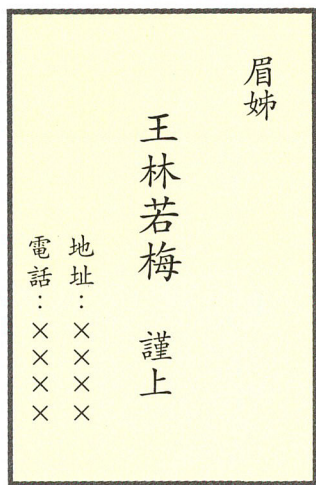 眉姊
王林若梅　謹上
地址：××××
電話：××××